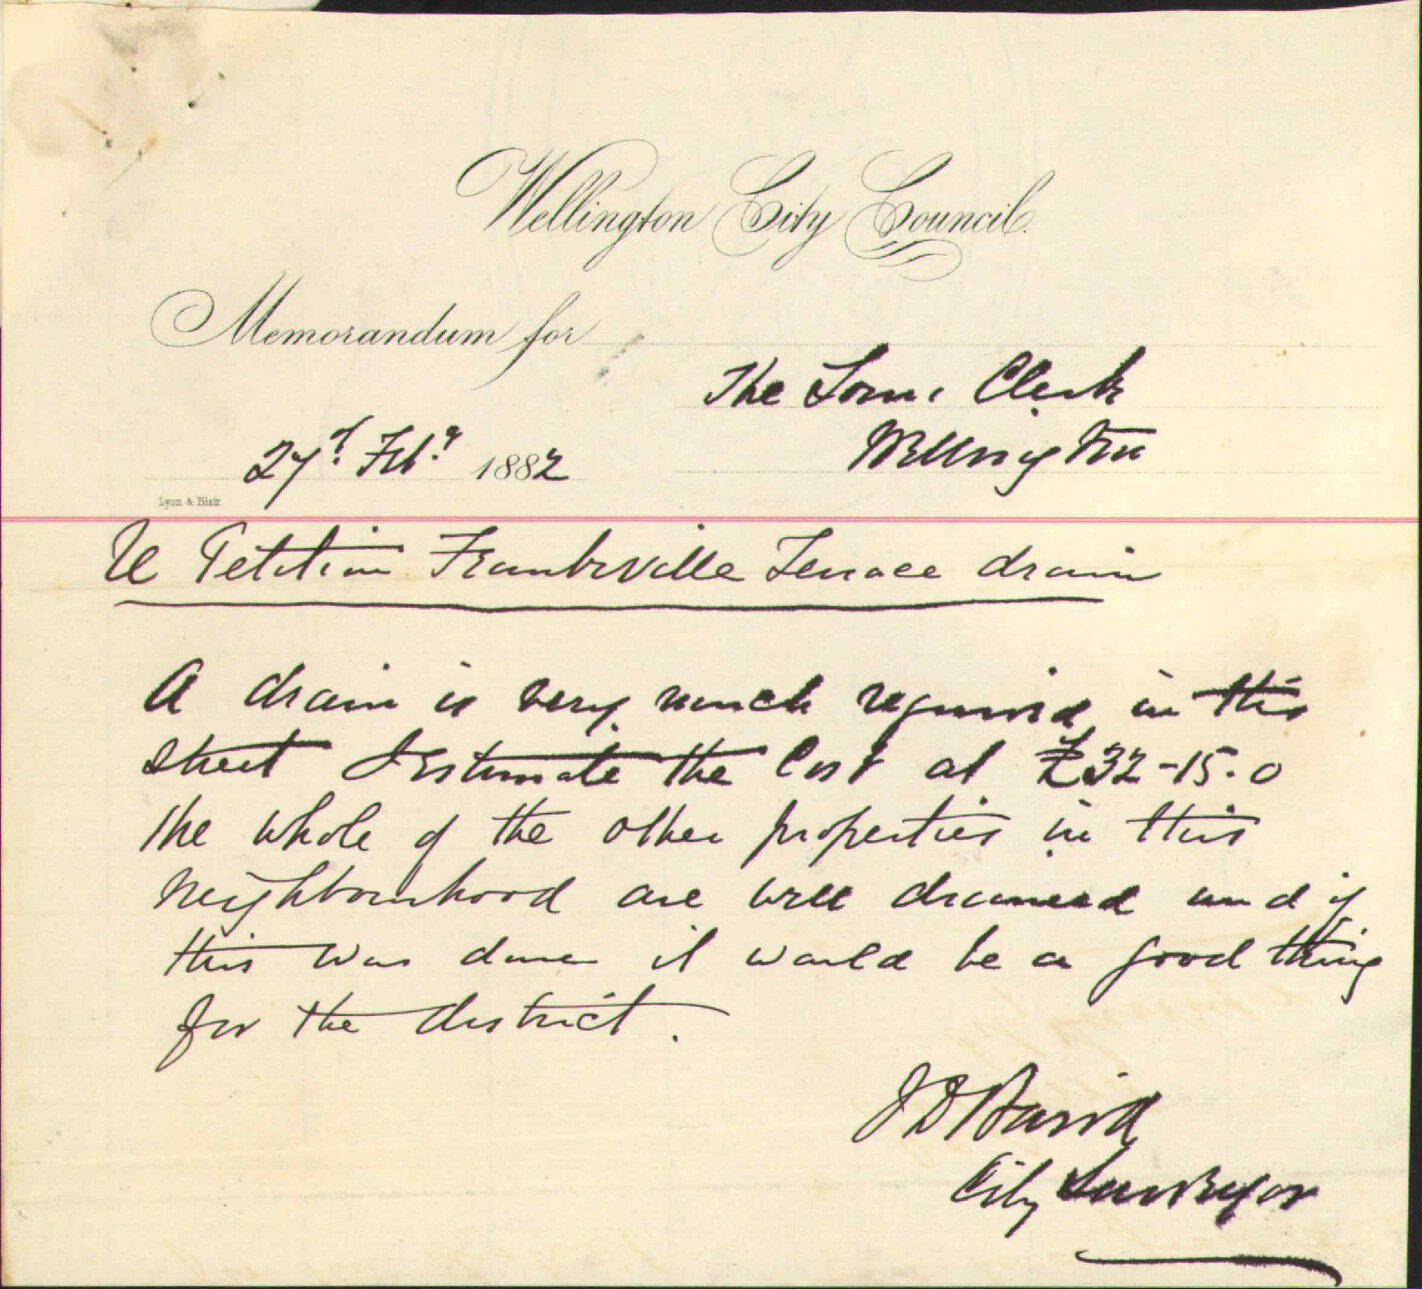 Wellington City Council.
Memorandum for
The Town Clerk
Wellington
27th Feby 1882
Lyon & Blair
Re Petition Frankville Terrace drain
A drain is very much required in this
street I estimate the Cost at £32-15.0
the whole of the other properties in this
neighbourhood are well drained and if
this was done it would be a good thing
for the district.
J D Baird
City Surveyor